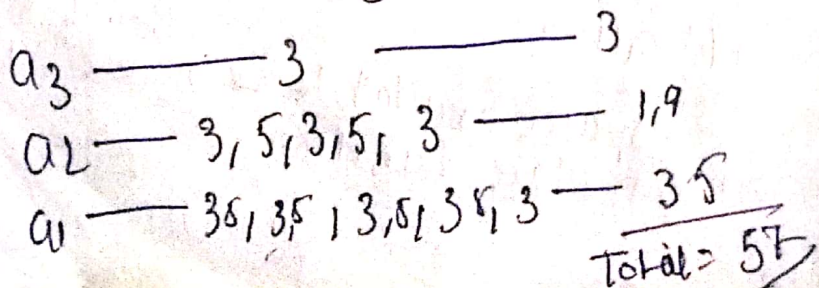 a3 — 3 — 3
a2 — 3, 5, 3, 5, 3 — 1,9
a1 — 35, 3,5, 3,5, 35, 3 — 35
Total = 57